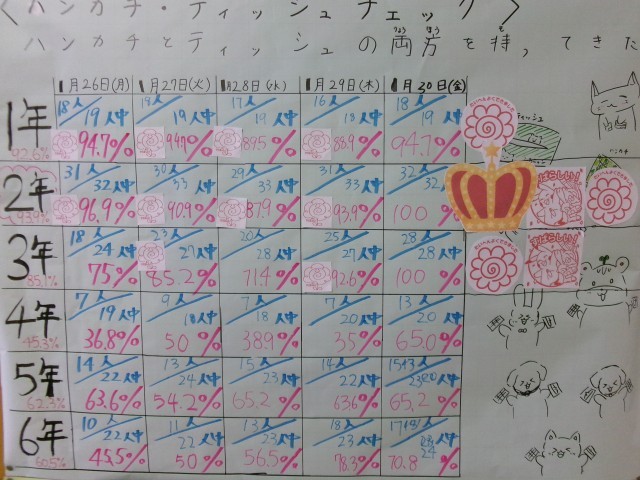 〈ハンカチ・ティッシュチェック〉
ハンカチとティッシュの両方を持ってきた
りょう ほう も
1月26日(月) 1月27日(火) 1月28日(水) 1月29日(木) 1月30日(金)
1年 18人/19人中 18人/19人中 17人/19人中 16人/18人中 18人/19人中
92.6% 94.7% 94.7% 89.5% 88.9% 94.7%
ティッシュ
2年 31人/32人中 30人/33人中 29人/33人中 31人/33人中 32人/32人中
93.9% 96.9% 90.9% 87.9% 93.9% 100%
すばらしい!
3年 18人/24人中 23人/27人中 20人/28人中 25人/27人中 28人/28人中
85.1% 75% 85.2% 71.4% 92.6% 100%
すばらしい!
4年 7人/19人中 9人/18人中 7人/18人中 7人/20人中 13人/20人中
45.3% 36.8% 50% 38.9% 35% 65.0%
5年 14人/22人中 13人/24人中 15人/23人中 14人/22人中 15人/23人中
62.3% 63.6% 54.2% 65.2% 63.6% 65.2%
6年 10人/22人中 11人/22人中 13人/23人中 18人/23人中 17人/24人中
60.5% 45.5% 50% 56.5% 78.3% 70.8%